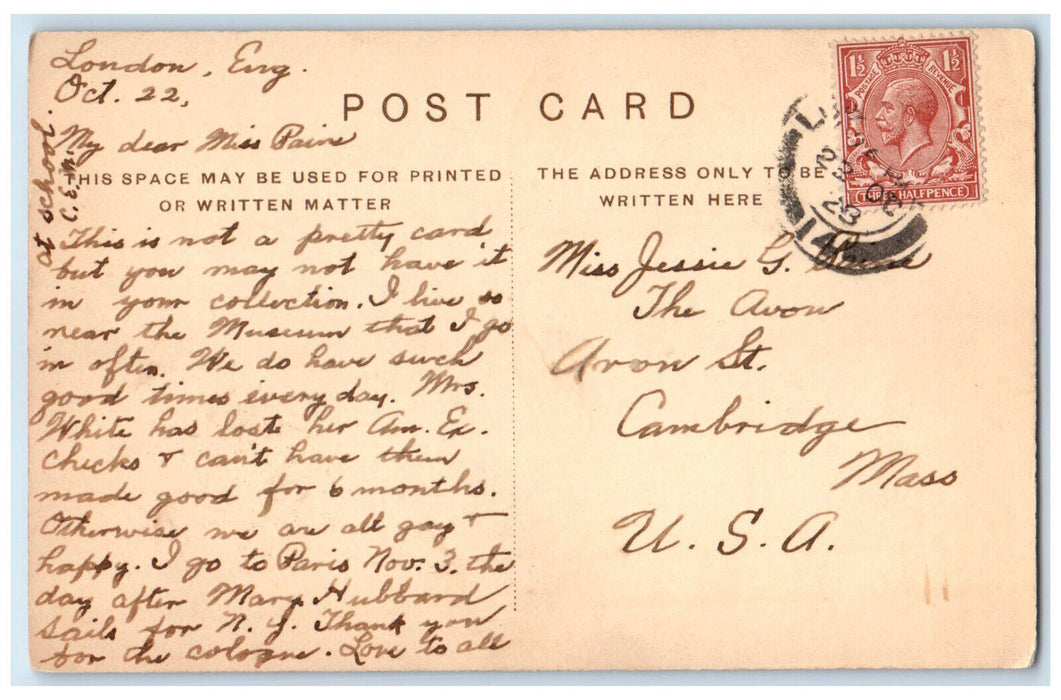 London, Eng.
Oct. 22,
POST CARD
My dear Miss Paine
THIS SPACE MAY BE USED FOR PRINTED
OR WRITTEN MATTER
This is not a pretty card
but you may not have it
in your collection. I live so
near the Museum that I go
in often. We do have such
good times every day. Mrs.
White has lost her Am. Ex.
checks & can't have them
made good for 6 months.
Otherwise we are all gay &
happy. I go to Paris Nov. 3. the
day after Mary Hubbard
sails for N. Y. Thank you
for the cologne. Love to all
at school.
C. E. H.
THE ADDRESS ONLY TO BE
WRITTEN HERE
Miss Jessie G. Paine
The Avon
Avon St.
Cambridge
Mass
U. S. A.
1½ 1½
POSTAGE REVENUE
THREE HALFPENCE
23 OC
23
14